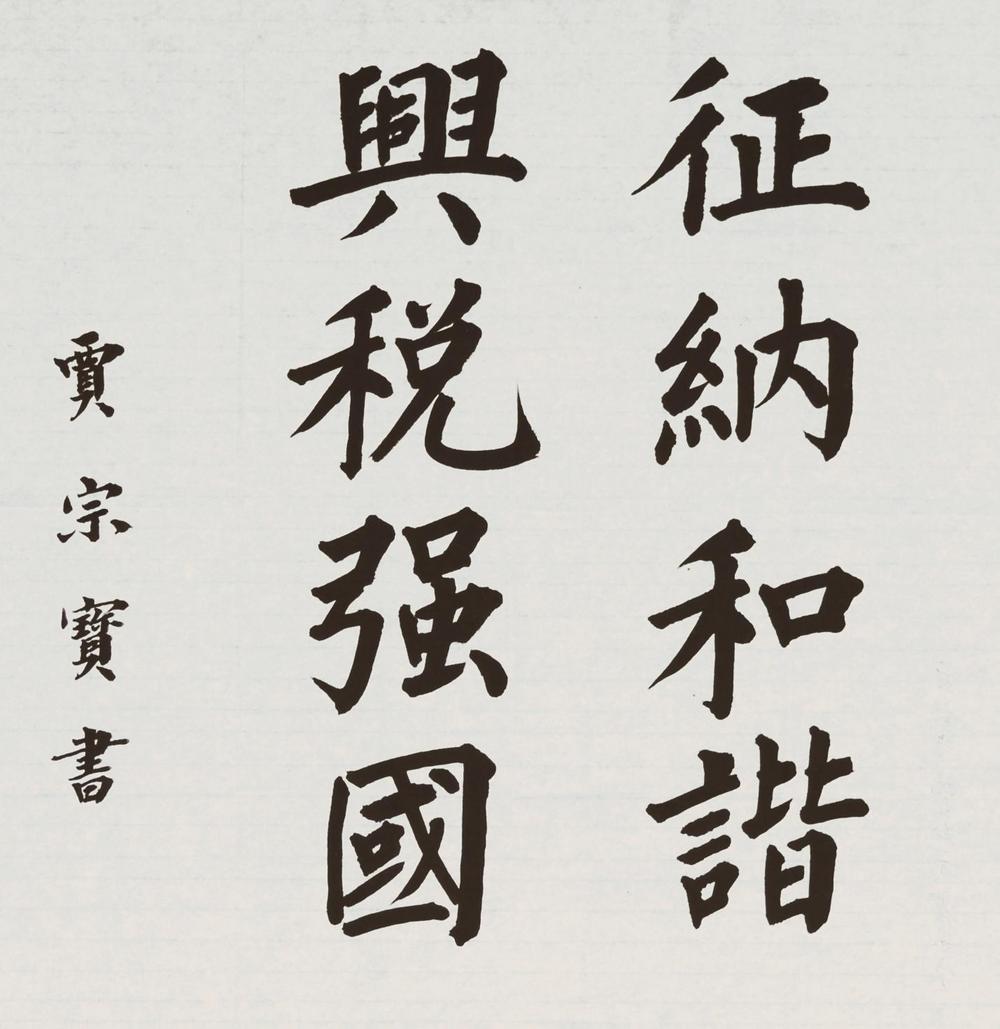 征納和諧
興税强國
賈宗寶書